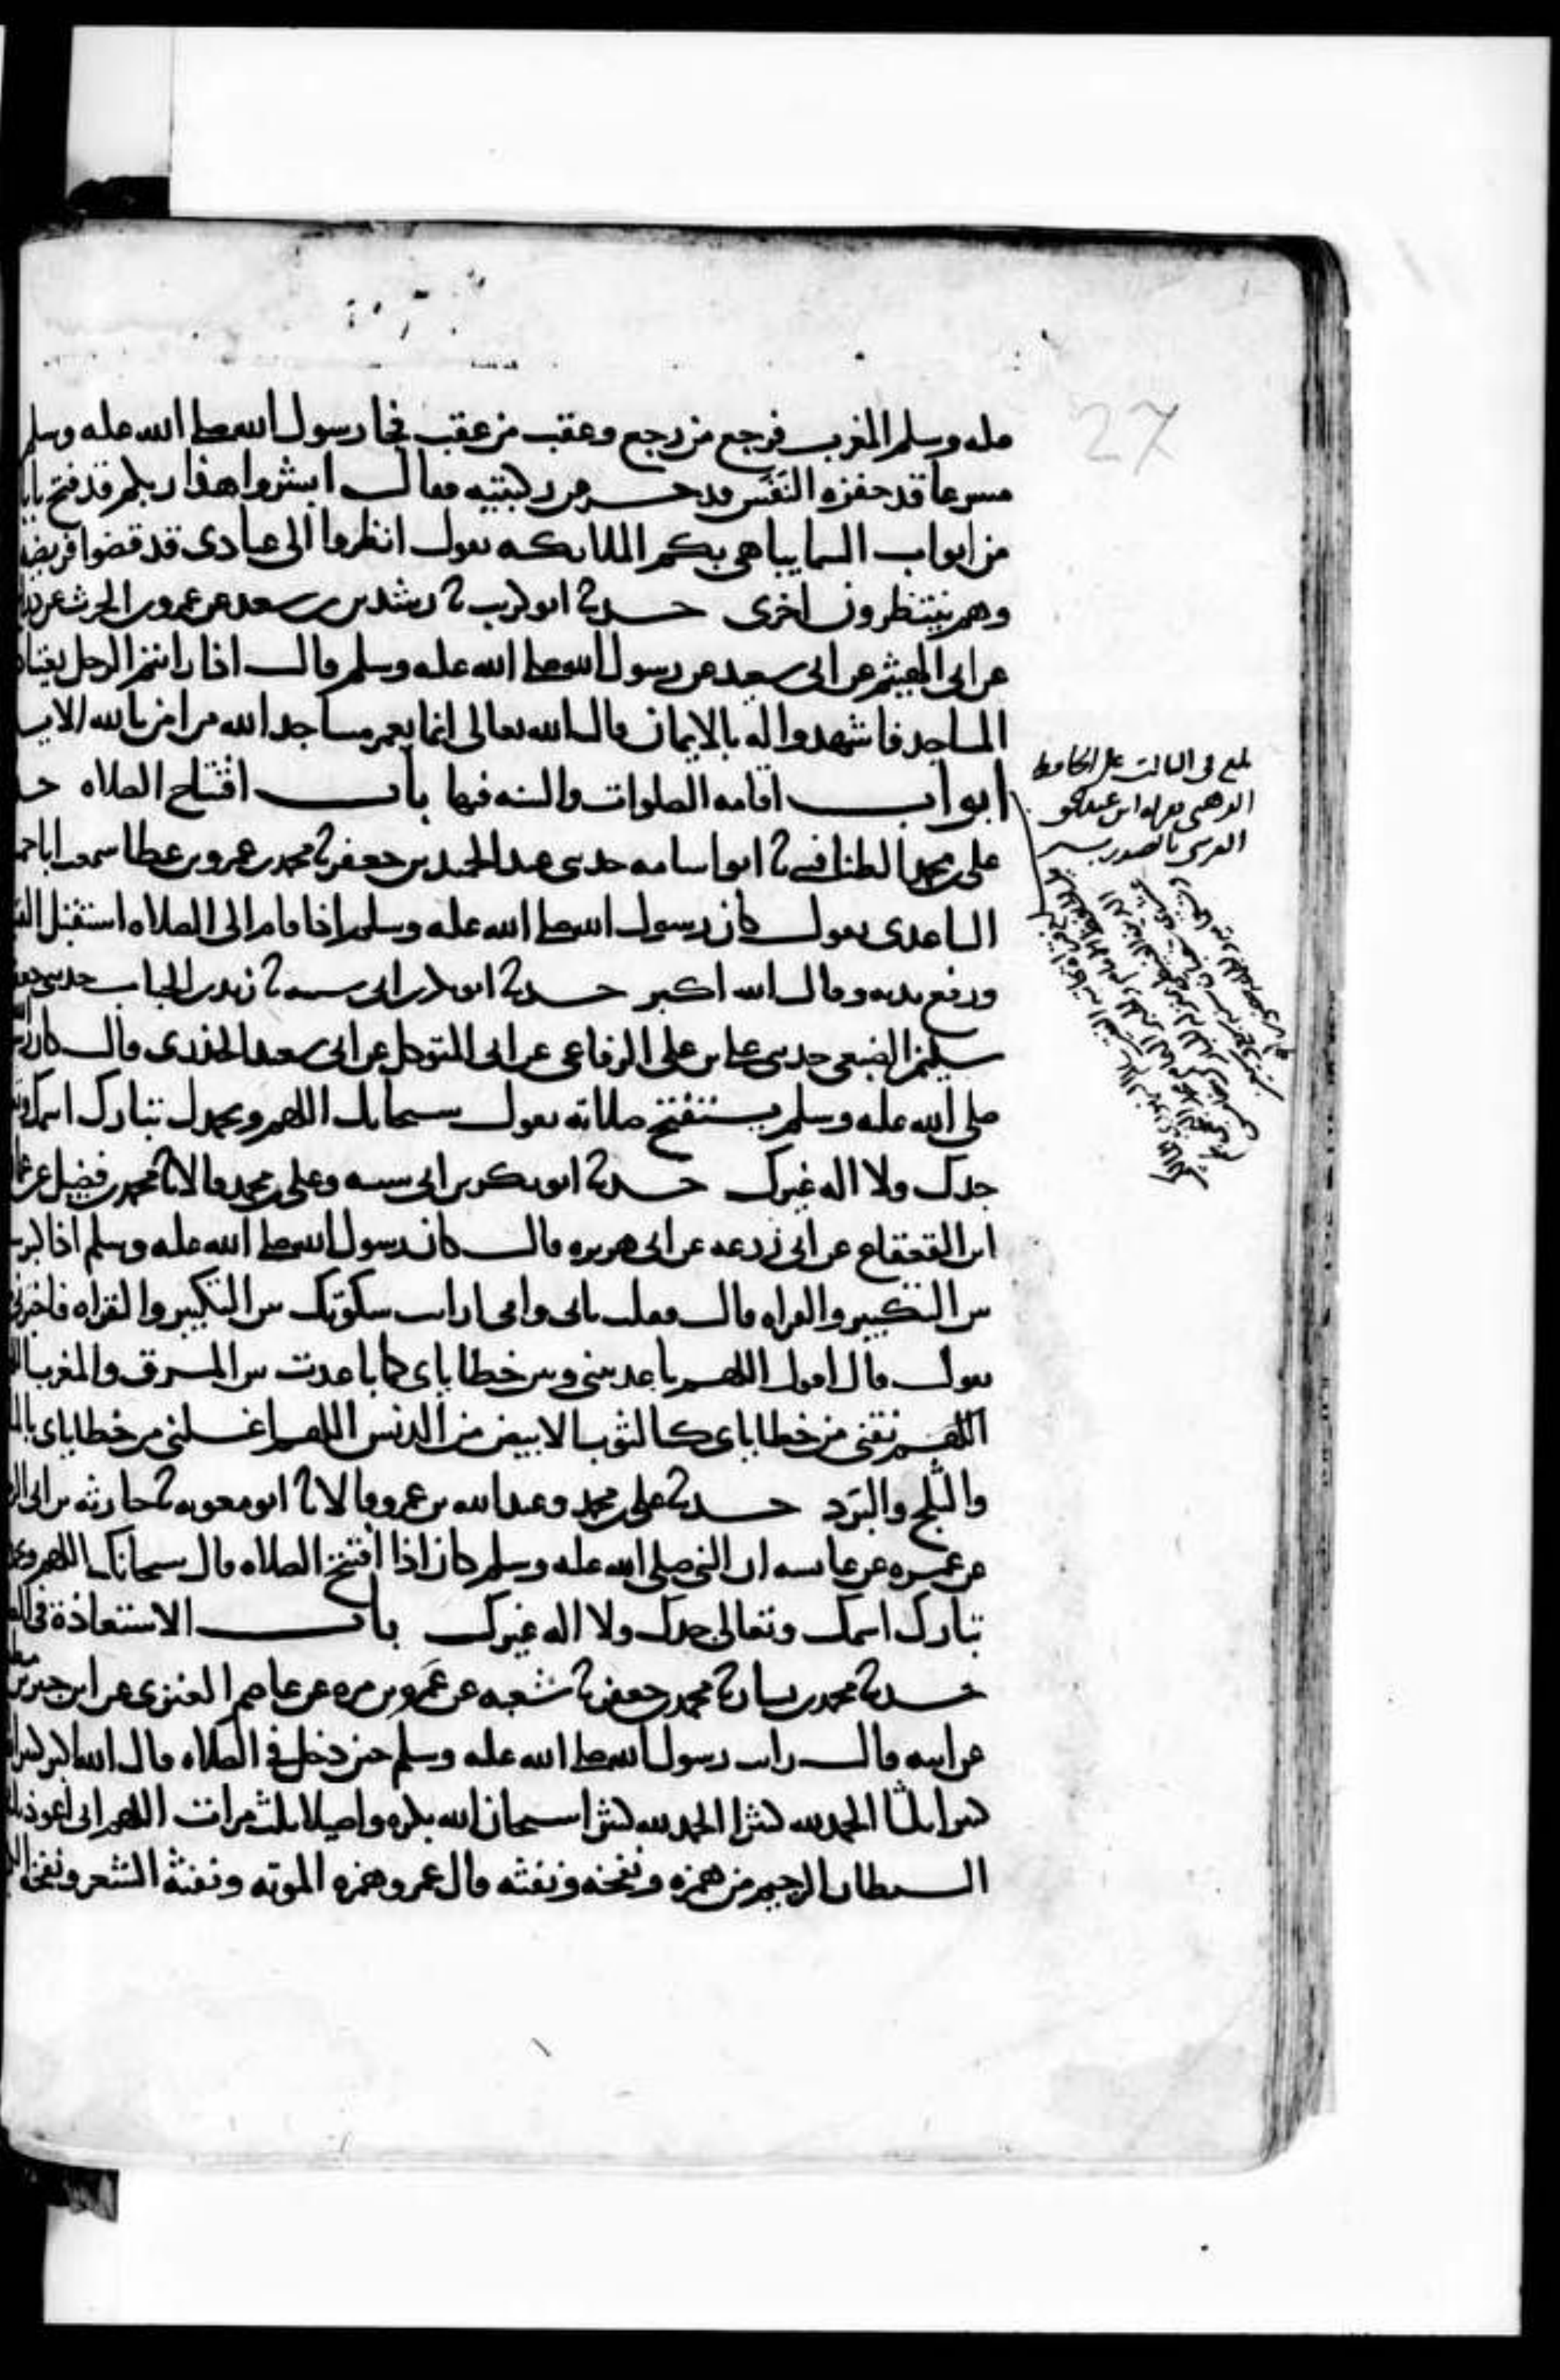 27
عليه وسلم المغرب فرجع من رجع وعقب من عقب فجا رسول الله صلى الله عليه وسلم
مسرعا قد حفزه النفس قد حسر عن ركبتيه فقال ابشروا هذا ربكم قد فتح بابا
من ابواب السما يباهي بكم الملايكه يقول انظروا الى عبادى قد قضوا فريضة
وهم ينتظرون اخرى حدثنا ابو كريب ثنا رشدين بن سعد عن عمرو بن الحرث عن دراج
عن ابى الهيثم عن ابى سعيد عن رسول الله صلى الله عليه وسلم قال اذا رايتم الرجل يعتاد
المساجد فاشهدوا له بالايمان قال الله تعالى انما يعمر مساجد الله من امن بالله الايه
ابواب اقامه الصلوات والسنه فيها باب افتتاح الصلاه
على بن محمد الطنافسى ثنا ابو اسامه حدثنى عبد الحميد بن جعفر ثنا محمد بن عمرو بن عطا سمعت ابا حميد
الساعدى يقول كان رسول الله صلى الله عليه وسلم اذا قام الى الصلاه استقبل القبله
ورفع يديه وقال الله اكبر حدثنا ابو بكر بن ابى شيبه ثنا زيد بن الحباب حدثنى جعفر
سليمن الضبعى حدثنى على بن على الرفاعى عن ابى المتوكل عن ابى سعيد الخدرى قال كان رسول الله
صلى الله عليه وسلم يستفتح صلاته يقول سبحانك اللهم وبحمدك تبارك اسمك وتعالى
جدك ولا اله غيرك حدثنا ابو بكر بن ابى شيبه وعلى بن محمد قالا ثنا محمد بن فضيل عن عمارة
ابن القعقاع عن ابى زرعه عن ابى هريره قال كان رسول الله صلى الله عليه وسلم اذا كبر سكت
بين التكبير والقراه قال فقلت بابى وامى ارايت سكوتك بين التكبير والقراه فاخبرنى
تقول قال اقول اللهم باعد بينى وبين خطاياى كما باعدت بين المشرق والمغرب
اللهم نقنى من خطاياى كالثوب الابيض من الدنس اللهم اغسلنى من خطاياى بالما
والثلج والبرد حدثنا على بن محمد وعبد الله بن عمرو قالا ثنا ابو معويه ثنا حارثه بن ابى الرجال
عن عمره عن عايشه ان النبى صلى الله عليه وسلم كان اذا افتتح الصلاه قال سبحانك اللهم وبحمدك
تبارك اسمك وتعالى جدك ولا اله غيرك باب الاستعاذة فى الصلاه
حدثنا محمد بن بشار ثنا محمد بن جعفر ثنا شعبه عن عمرو بن مره عن عاصم العنزى عن ابن جبير بن مطعم
عن ابيه قال رايت رسول الله صلى الله عليه وسلم حين دخل فى الصلاه قال الله اكبر كبيرا
كبيرا ثلثا الحمد لله كثيرا الحمد لله كثيرا سبحان الله بكره واصيلا ثلث مرات اللهم انى اعوذ بك
الشيطان الرجيم من همزه ونفخه ونفثه قال عمرو همزه الموته ونفثه الشعر ونفخه
بلغ فى الثالث على الحافظ
الذهبى